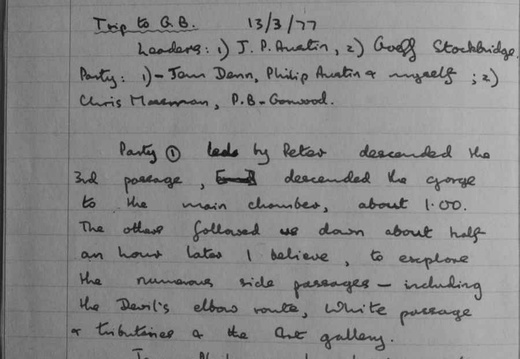 Trip to G.B. 13/3/77
Leaders: 1) J. P. Austin, 2) Geoff Stockbridge.
Party: 1) - Jam Denn, Philip Austin & myself ; 2)
Chris Mossman, P.B-Gonwood.
Party ① leds by Peter descended the
3rd passage, descended the gorge
to the main chamber, about 1.00.
The others followed us down about half
an hour later I believe, to explore
the numerous side passages - including
the Devil's elbow route, White passage
& tributaries & the Art gallery.